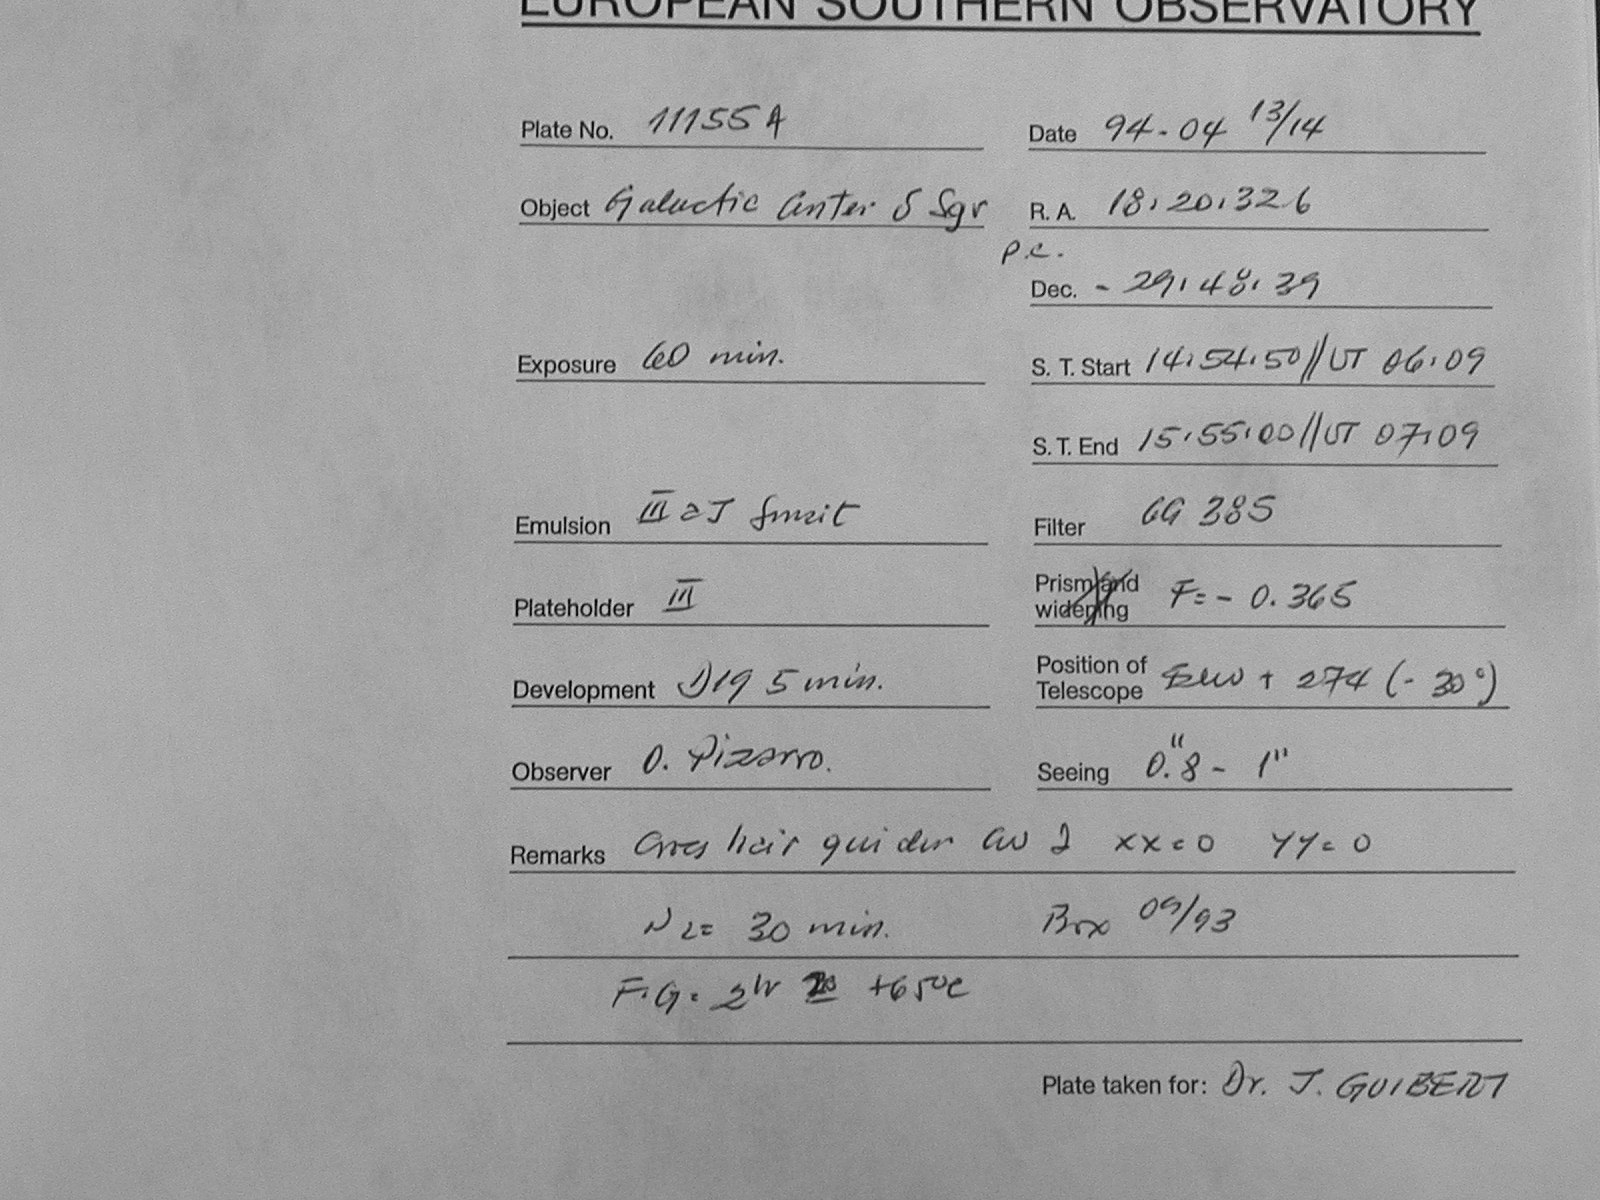 EUROPEAN SOUTHERN OBSERVATORY
Plate No. 11155A Date 94-04 13/14
Object Galactic Center δ Sgr R. A. 18.20.32.6
p.c.
Dec. - 29.48.39
Exposure 60 min. S. T. Start 14.54.50//UT 06.09
S. T. End 15.55.00//UT 07.09
Emulsion III aJ Filter GG 385
Plateholder III Prism and widening F= - 0.365
Development D19 5 min. Position of Telescope + 274 (- 30°)
Observer O. Pizarro. Seeing 0."8 - 1"
Remarks Cross hair guider xx=0 YY=0
N2= 30 min. Box 09/93
F.G= 2hr +65°C
Plate taken for: Dr. J. GUIBERT